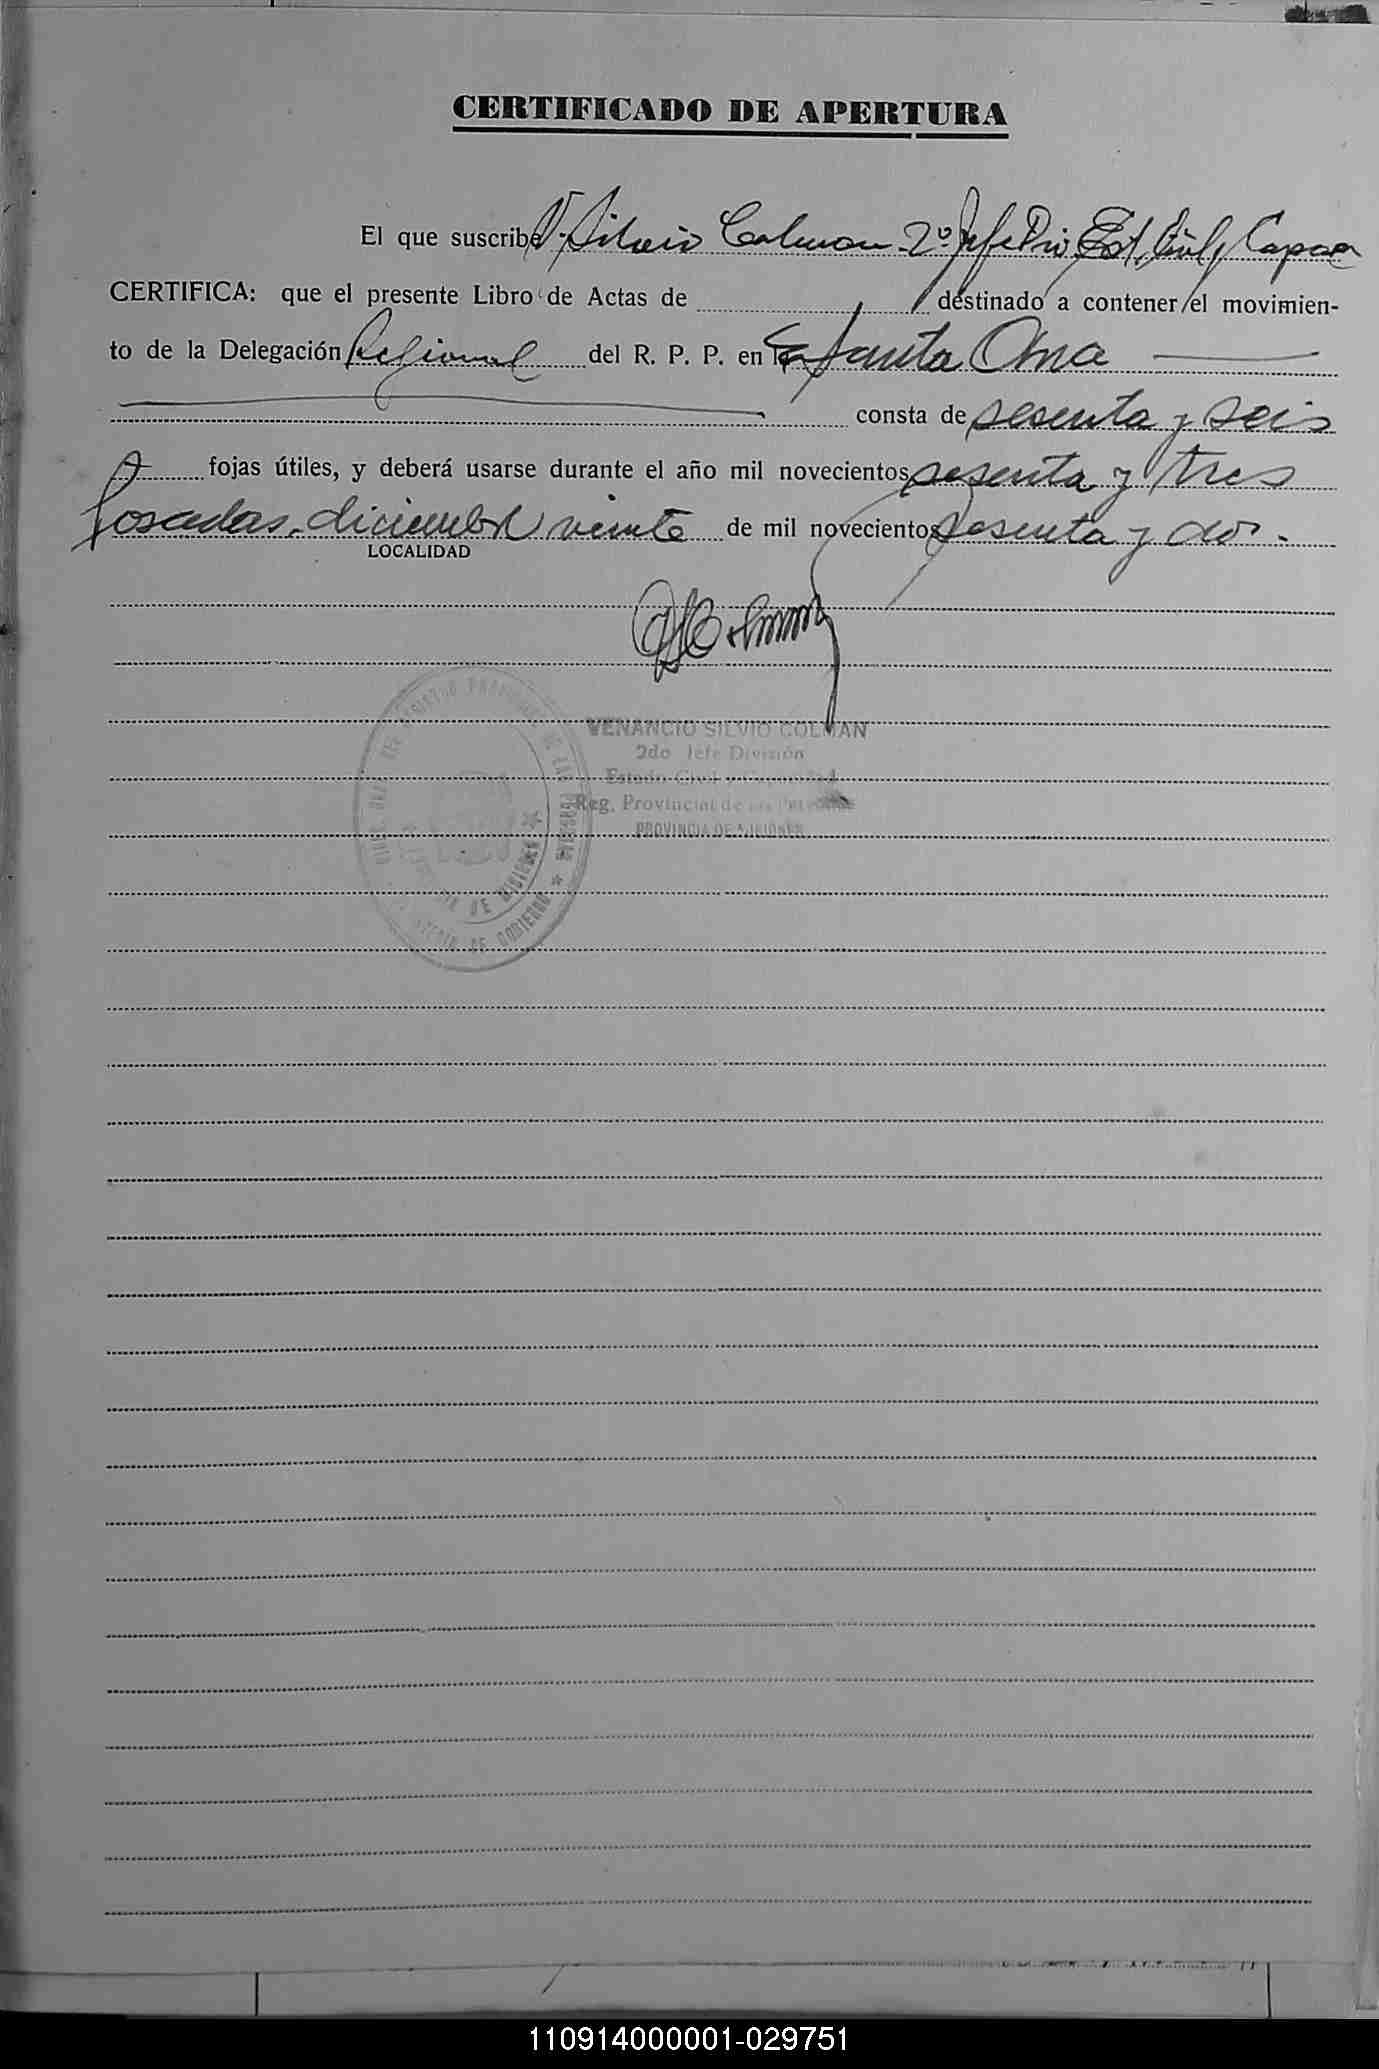 CERTIFICADO DE APERTURA
El que suscribe V. Silvio Colman 2º Jefe Div. Est. Civil y Capac
CERTIFICA: que el presente Libro de Actas de destinado a contener el movimien-
to de la Delegación Regional del R. P. P. en Santa Ana
consta de sesenta y seis
fojas útiles, y deberá usarse durante el año mil novecientos sesenta y tres
Posadas, diciembre veinte de mil novecientos sesenta y dos.
LOCALIDAD
VENANCIO SILVIO COLMAN
2do Jefe División
Estado Civil y Capacidad
Reg. Provincial de las Personas
PROVINCIA DE MISIONES
110914000001-029751